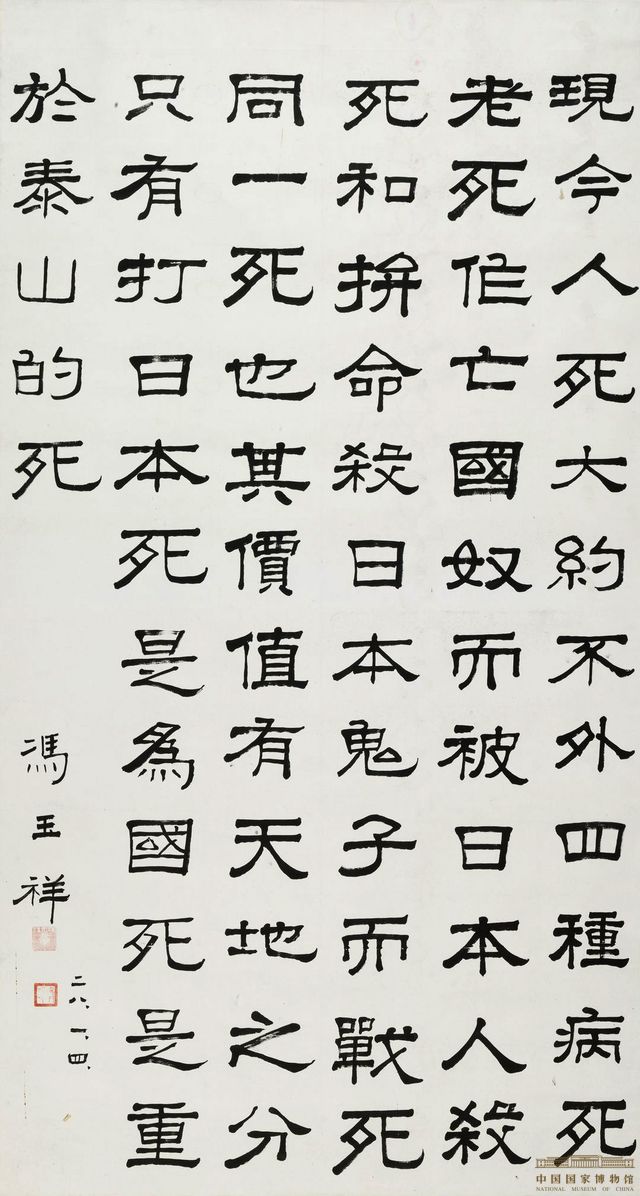 現今人死大約不外四種病死
老死作亡國奴而被日本人殺
死和拚命殺日本鬼子而戰死
同一死也其價值有天地之分
只有打日本死是為國死是重
於泰山的死
馮玉祥
二八、一、四、
中国国家博物馆
NATIONAL MUSEUM OF CHINA